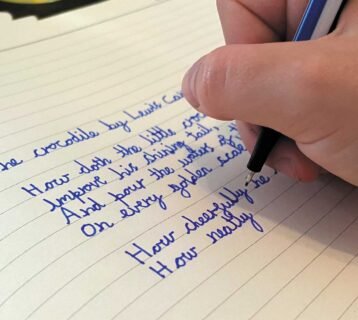 he crocodile by Lewis Ca
How doth the little cro
Improve his shining tail,
And pour the waters
On every golden scal
How cheerfully he
How neatly